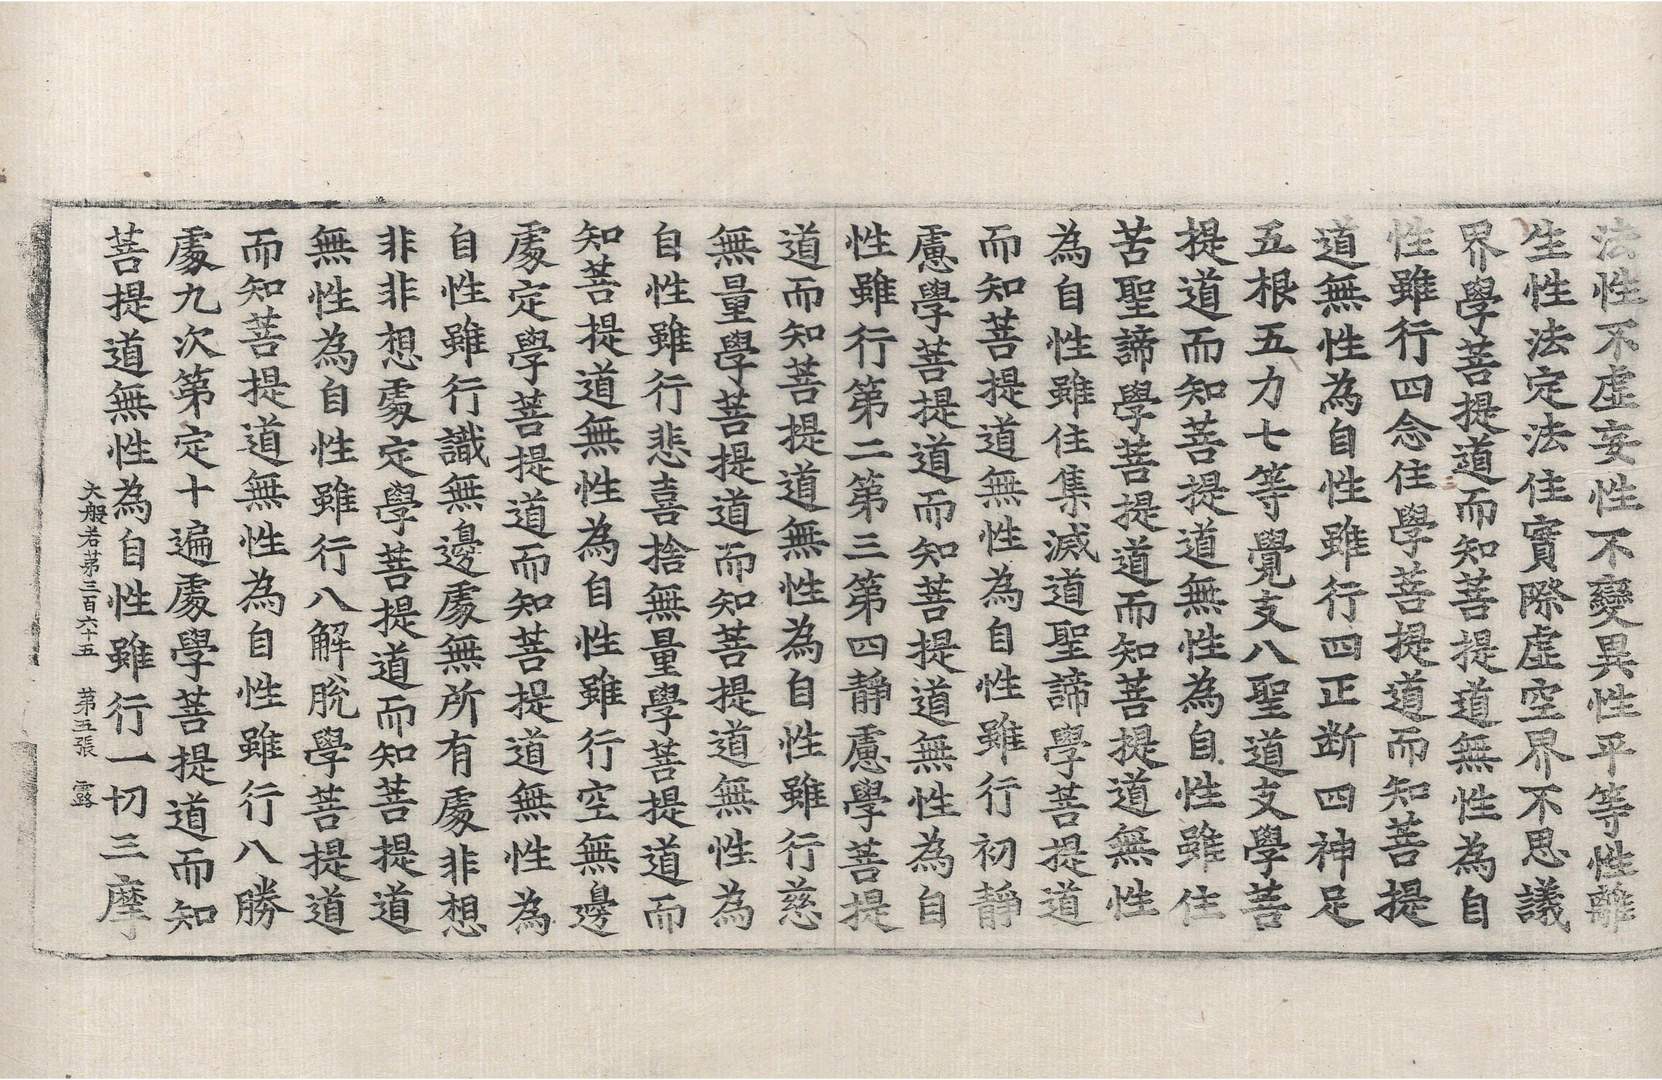 法性不虛妄性不變異性平等性離
生性法定法住實際虛空界不思議
界學菩提道而知菩提道無性為自
性雖行四念住學菩提道而知菩提
道無性為自性雖行四正斷四神足
五根五力七等覺支八聖道支學菩
提道而知菩提道無性為自性雖住
苦聖諦學菩提道而知菩提道無性
為自性雖住集滅道聖諦學菩提道
而知菩提道無性為自性雖行初靜
慮學菩提道而知菩提道無性為自
性雖行第二第三第四靜慮學菩提
道而知菩提道無性為自性雖行慈
無量學菩提道而知菩提道無性為
自性雖行悲喜捨無量學菩提道而
知菩提道無性為自性雖行空無邊
處定學菩提道而知菩提道無性為
自性雖行識無邊處無所有處非想
非非想處定學菩提道而知菩提道
無性為自性雖行八解脫學菩提道
而知菩提道無性為自性雖行八勝
處九次第定十遍處學菩提道而知
菩提道無性為自性雖行一切三摩
大般若第三百六十五 第五張 露